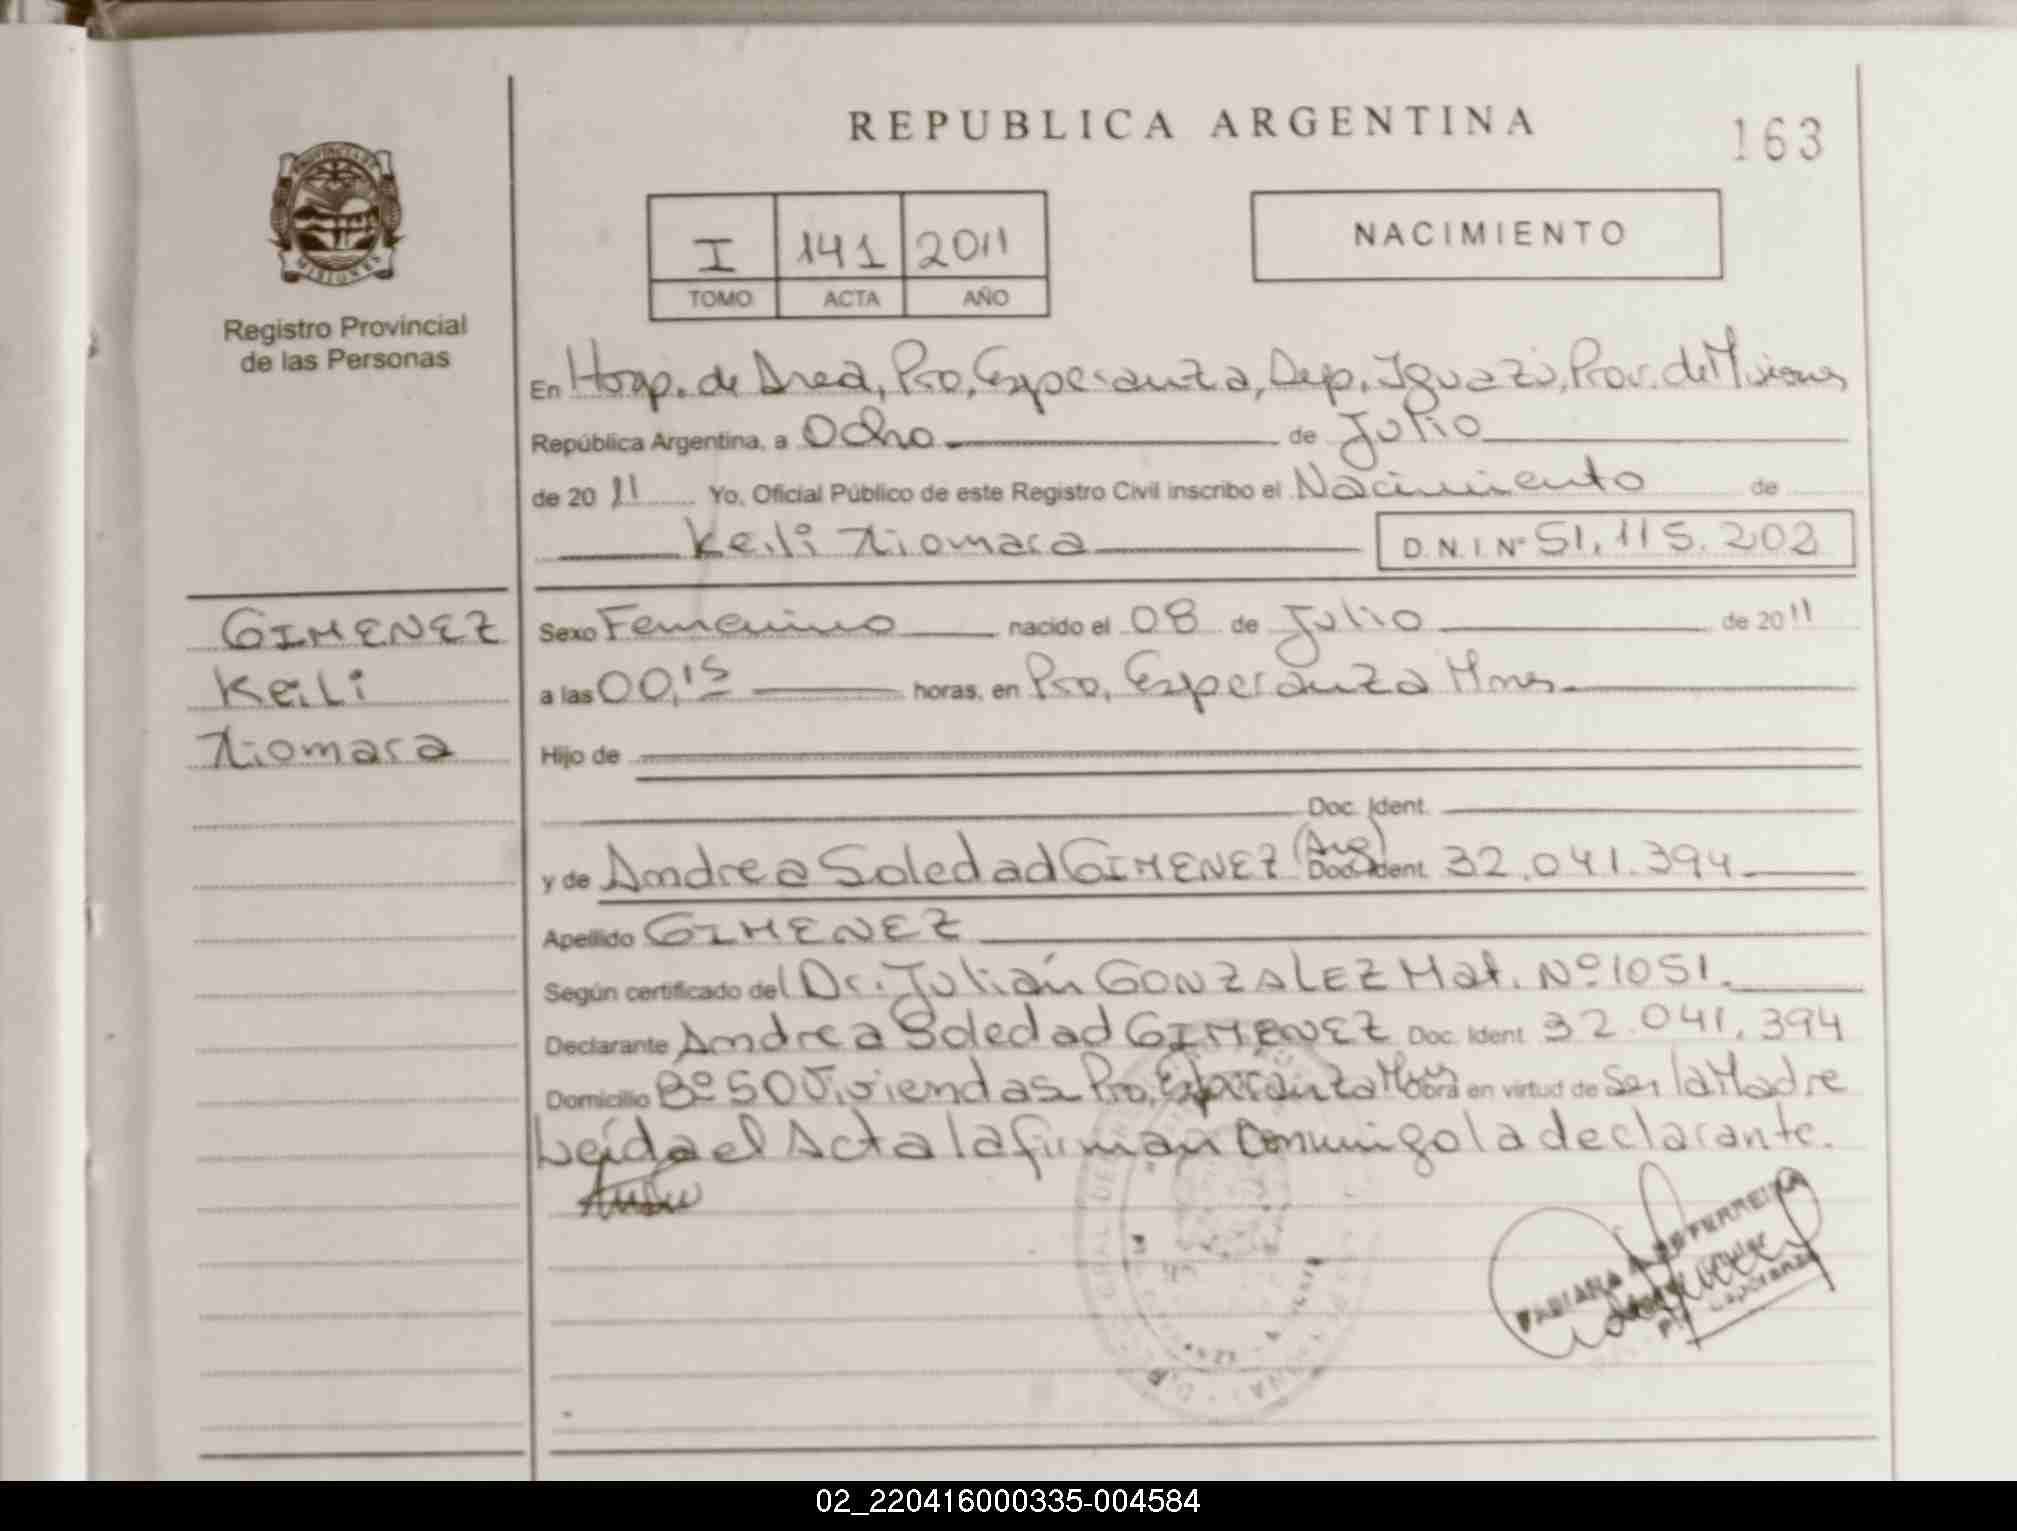 REPUBLICA ARGENTINA
163
PROVINCIA DE
MISIONES
Registro Provincial
de las Personas
I 141 2011
TOMO ACTA AÑO
NACIMIENTO
En Hosp. de Area, Pto, Esperanza, Dep. Iguazú, Prov. de Misiones
República Argentina, a Ocho de Julio
de 20 11 Yo, Oficial Público de este Registro Civil inscribo el Nacimiento de
Keili Xiomara D.N.I.Nº 51.115.202
GIMENEZ
Keili
Xiomara
Sexo Femenino nacido el 08 de Julio de 2011
a las 00,15 horas, en Pto, Esperanza Mnes.
Hijo de
Doc. Ident.
y de Andrea Soledad GIMENEZ (Arg) Doc. Ident. 32.041.394
Apellido GIMENEZ
Según certificado del Dr. Julián GONZALEZ Mat. Nº 1051.
Declarante Andrea Soledad GIMENEZ Doc. Ident 32.041.394
Domicilio Bº 50 Viviendas Pto, Esperanza Mnes Obra en virtud de Ser la Madre
Leída el Acta la firman conmigo la declarante.
02_220416000335-004584